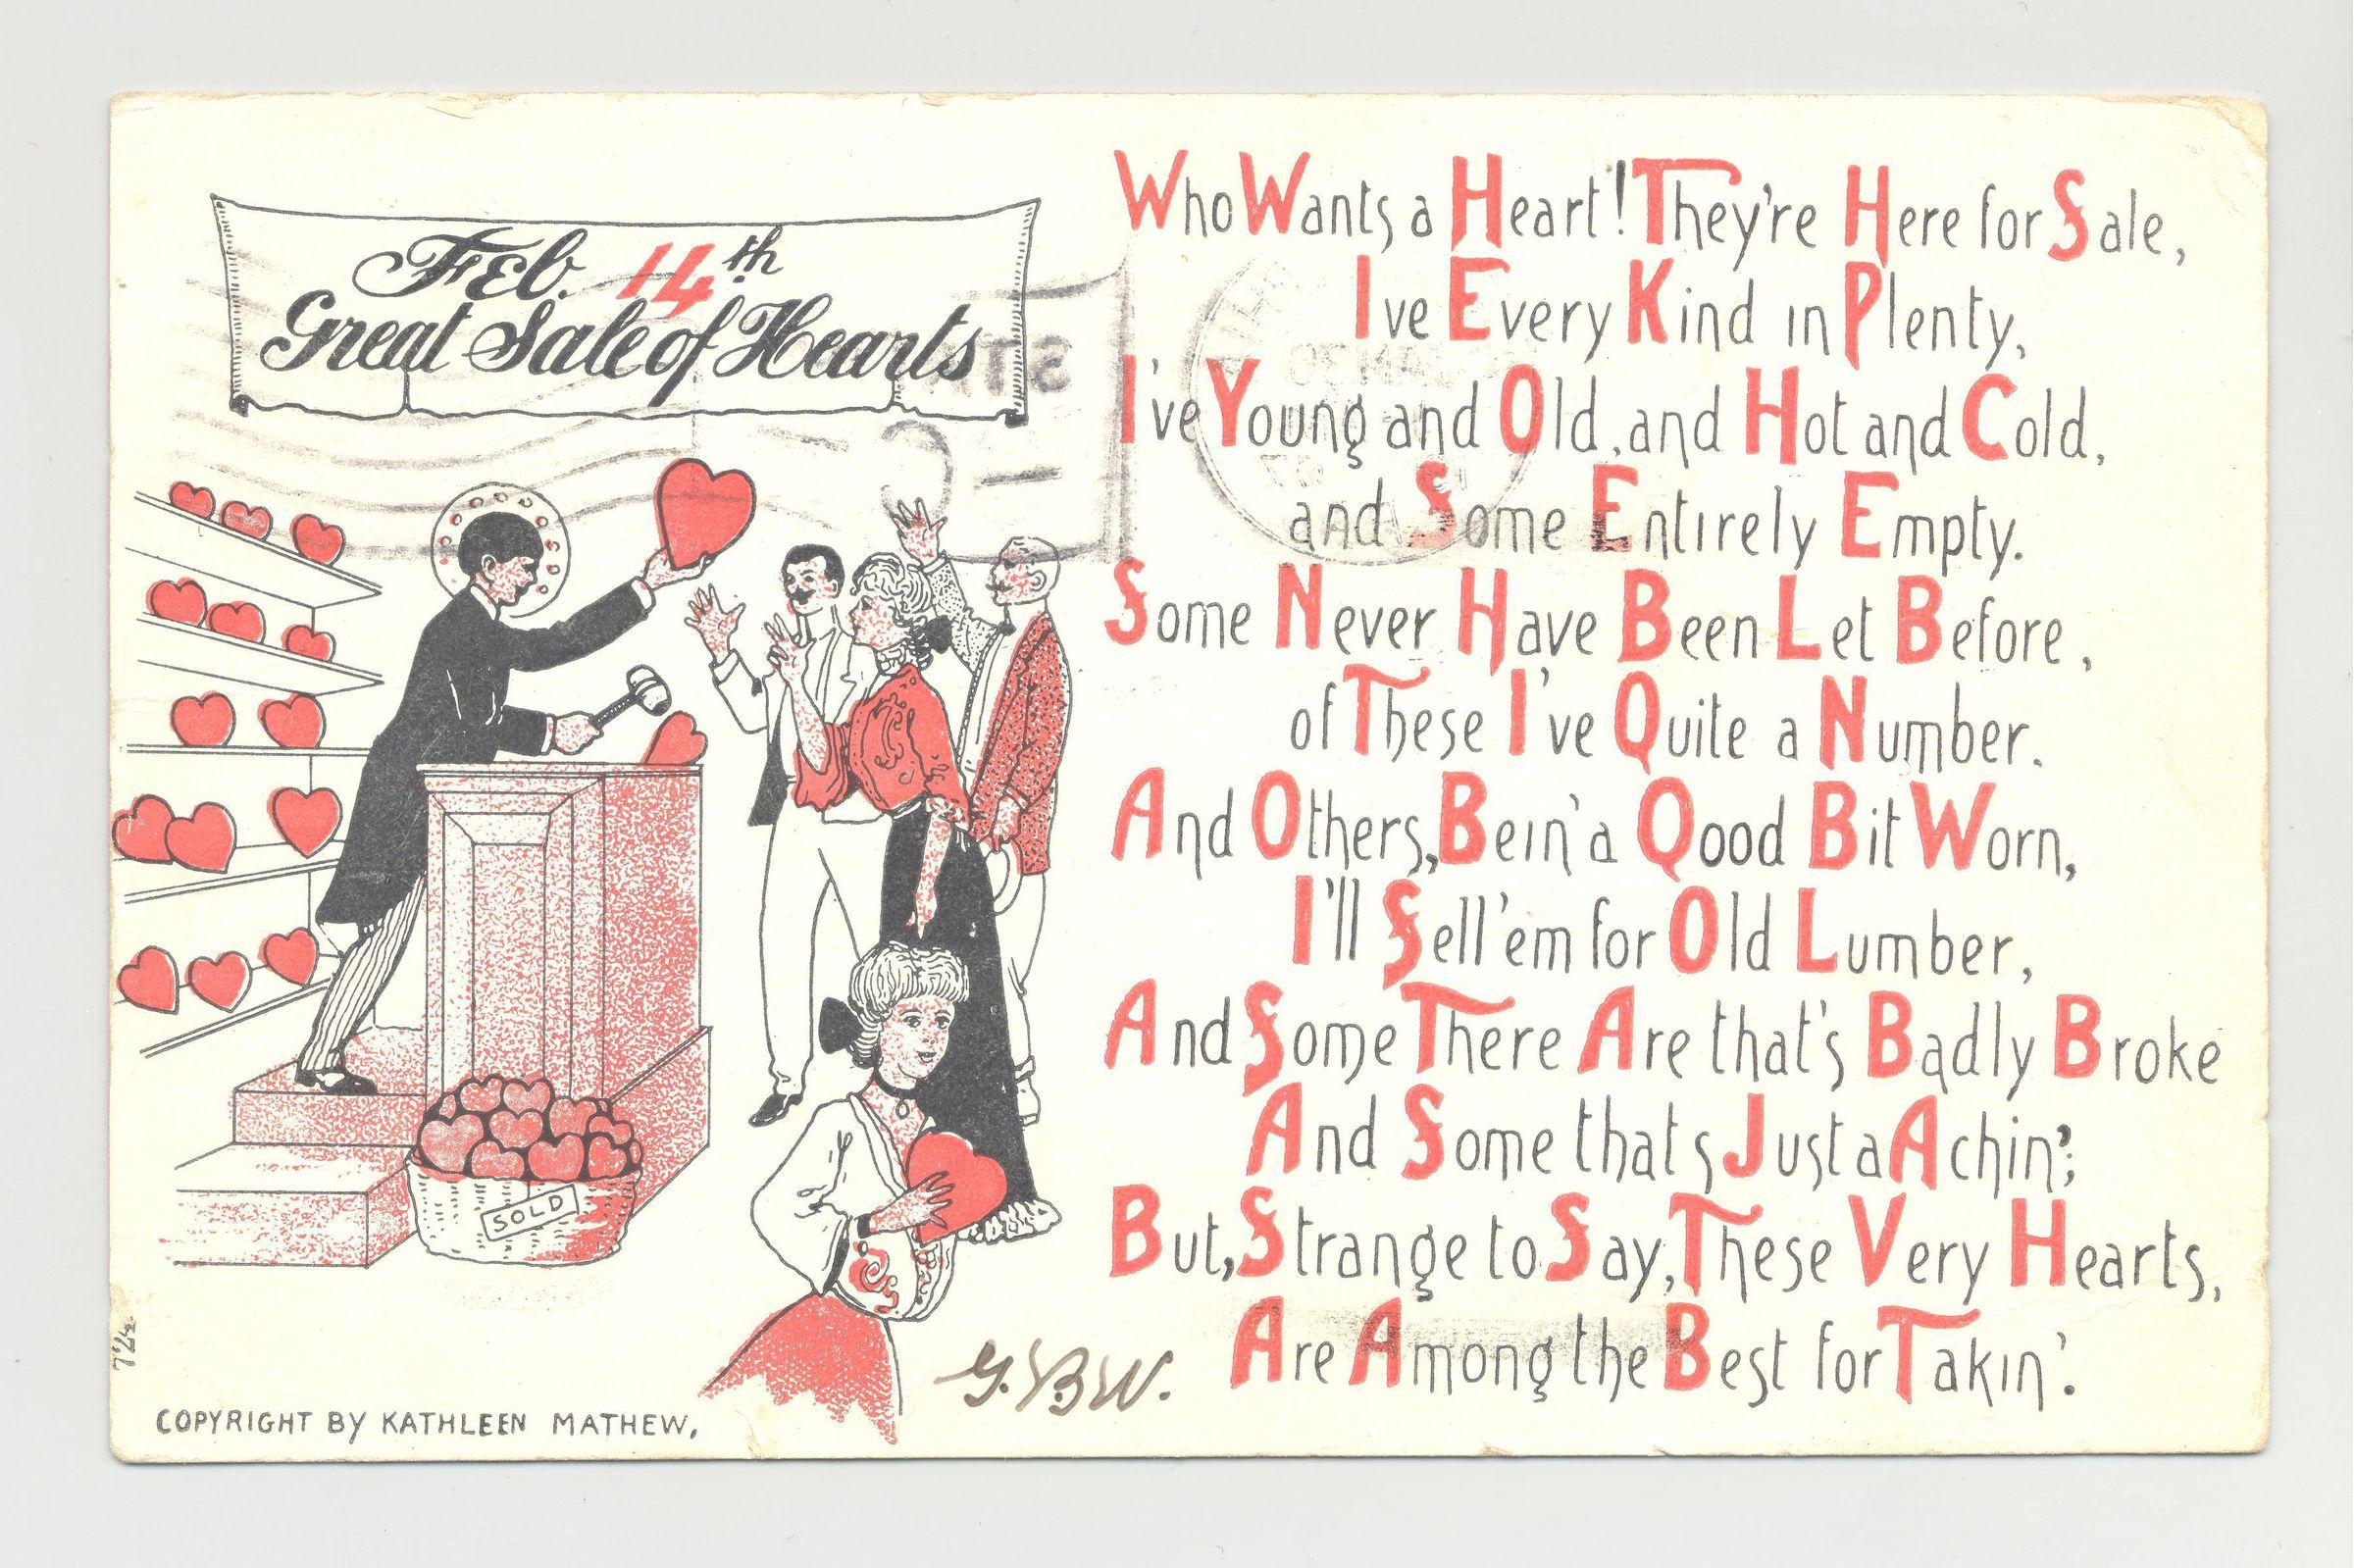 Feb. 14th
Great Sale of Hearts
Who Wants a Heart! They're Here for Sale,
I've Every Kind in Plenty,
I've Young and Old, and Hot and Cold,
and Some Entirely Empty.
Some Never Have Been Let Before,
of These I've Quite a Number.
And Others, Bein' a Good Bit Worn,
I'll Sell 'em for Old Lumber,
And Some There Are that's Badly Broke
And Some that's Just a Achin';
But, Strange to Say, These Very Hearts,
Are Among the Best for Takin'.
SOLD
G.B.W.
724
COPYRIGHT BY KATHLEEN MATHEW,